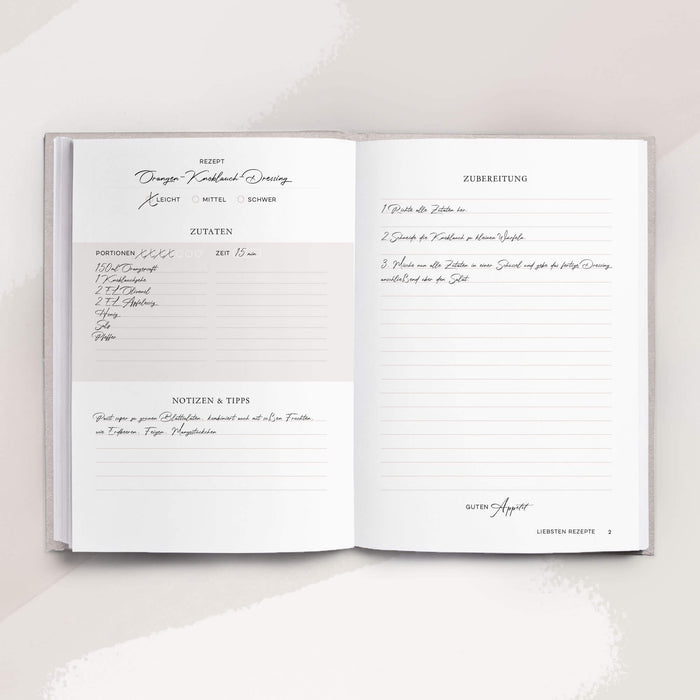 REZEPT
Orangen-Knoblauch-Dressing
X LEICHT MITTEL SCHWER
ZUTATEN
PORTIONEN XXXX ZEIT 15 min
150ml Orangensaft
1 Knoblauchzehe
2 EL Olivenöl
2 EL Apfelessig
Honig
Salz
Pfeffer
NOTIZEN & TIPPS
Passt super zu grünen Blattsalaten, kombiniert auch mit süßen Früchten,
wie Erdbeeren, Feigen, Mangostückchen
ZUBEREITUNG
1. Richte alle Zutaten her.
2. Schneide die Knoblauch zu kleinen Würfeln.
3. Mische nun alle Zutaten in einer Schüssel und gebe das fertige Dressing
anschließend über den Salat.
GUTEN Appetit
LIEBSTEN REZEPTE 2